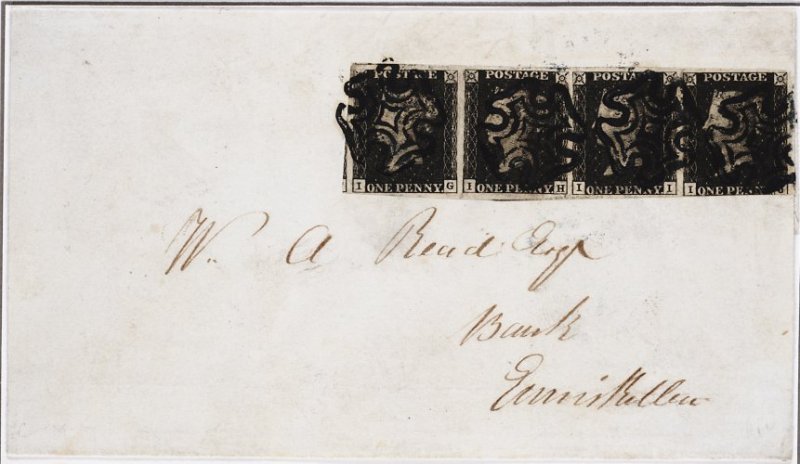 POSTAGE POSTAGE POSTAGE POSTAGE
I ONE PENNY G I ONE PENNY H I ONE PENNY I I ONE PENNY
W. A Read Esqr
Bank
Enniskillen